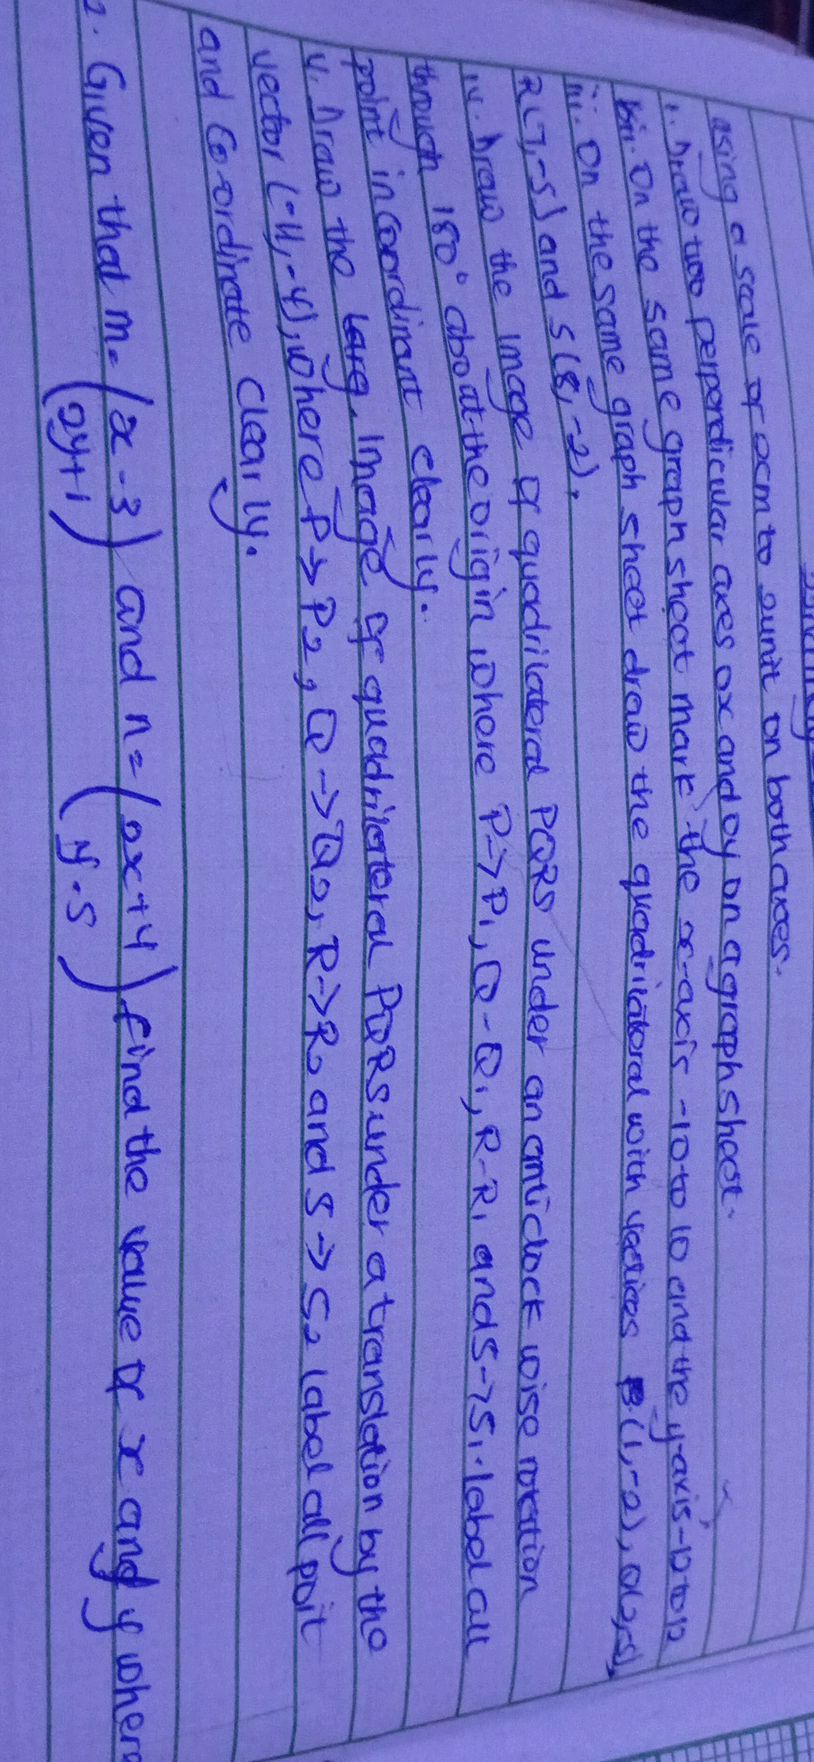 using a scale of 2cm to 2unit on both axes.
i. Draw two perpendicular axes ox and oy on a graph sheet.
ii. On the same graph sheet mark the x-axis -10 to 10 and the y-axis -12 to 12
iii. On the same graph sheet draw the quadrilateral with vertices P(1,-2), Q(2,-5),
R(7,-5) and S(8,-2).
iv. Draw the image of quadrilateral PQRS under an anticlock wise rotation
through 180° about the origin, where P→P1, Q-Q1, R-R1 and S→S1. label all
point in coordinant clearly.
v. Draw the image of quadrilateral PQRS under a translation by the
vector (-4,-4), where P→P2, Q→Q2, R→R2 and S→S2 label all poit
and Co-ordinate clearly.
2. Given that m=(x-3) and n=(2x+4) find the value of x and y where
(2y+1) (y-5)